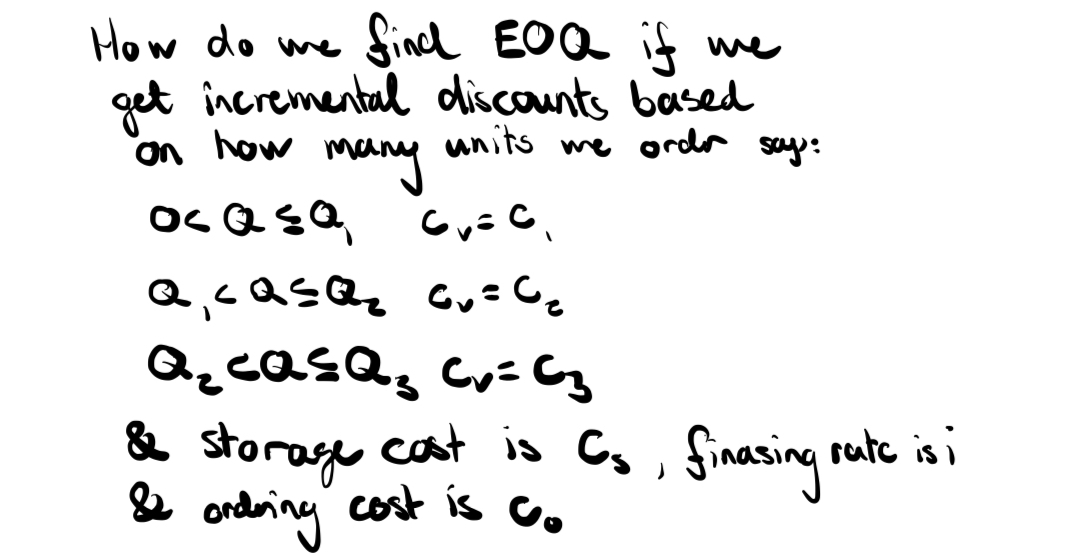 How do we find EOQ if we
get incremental discounts based
on how many units we order say:
0< Q ≤ Q₁ Cᵥ= C₁
Q₁ < Q ≤ Q₂ Cᵥ = C₂
Q₂ < Q ≤ Q₃ Cᵥ = C₃
& storage cost is Cₛ , finasing rate is i
& ordering cost is C₀